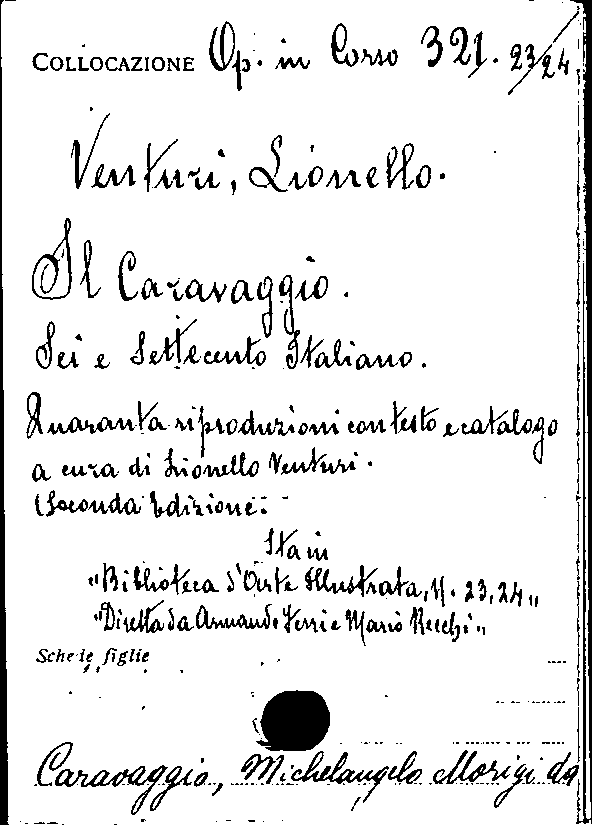 COLLOCAZIONE Op. in Corso 321. 23/24
Venturi, Lionello.
Il Caravaggio.
Sei e Settecento Italiano.
Quaranta riproduzioni con testo e catalogo
a cura di Lionello Venturi.
(Seconda Edizione.
Sta in
"Biblioteca d'Arte Illustrata, N. 23, 24"
"Diretta da Armando Ferri e Mario Recchi"
Schede figlie
Caravaggio, Michelangelo Morigi da